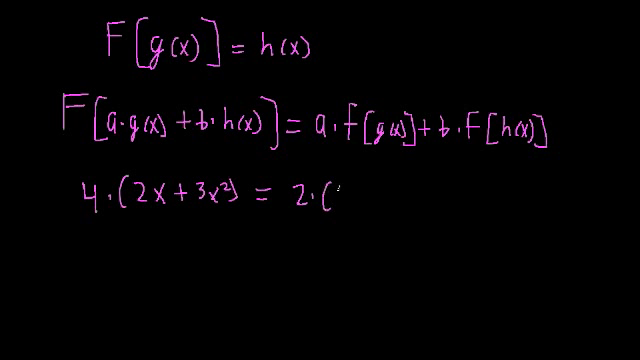 F[g(x)] = h(x)
F[a·g(x) + b·h(x)] = a·f[g(x)] + b·F[h(x)]
4·(2x + 3x²) = 2·(